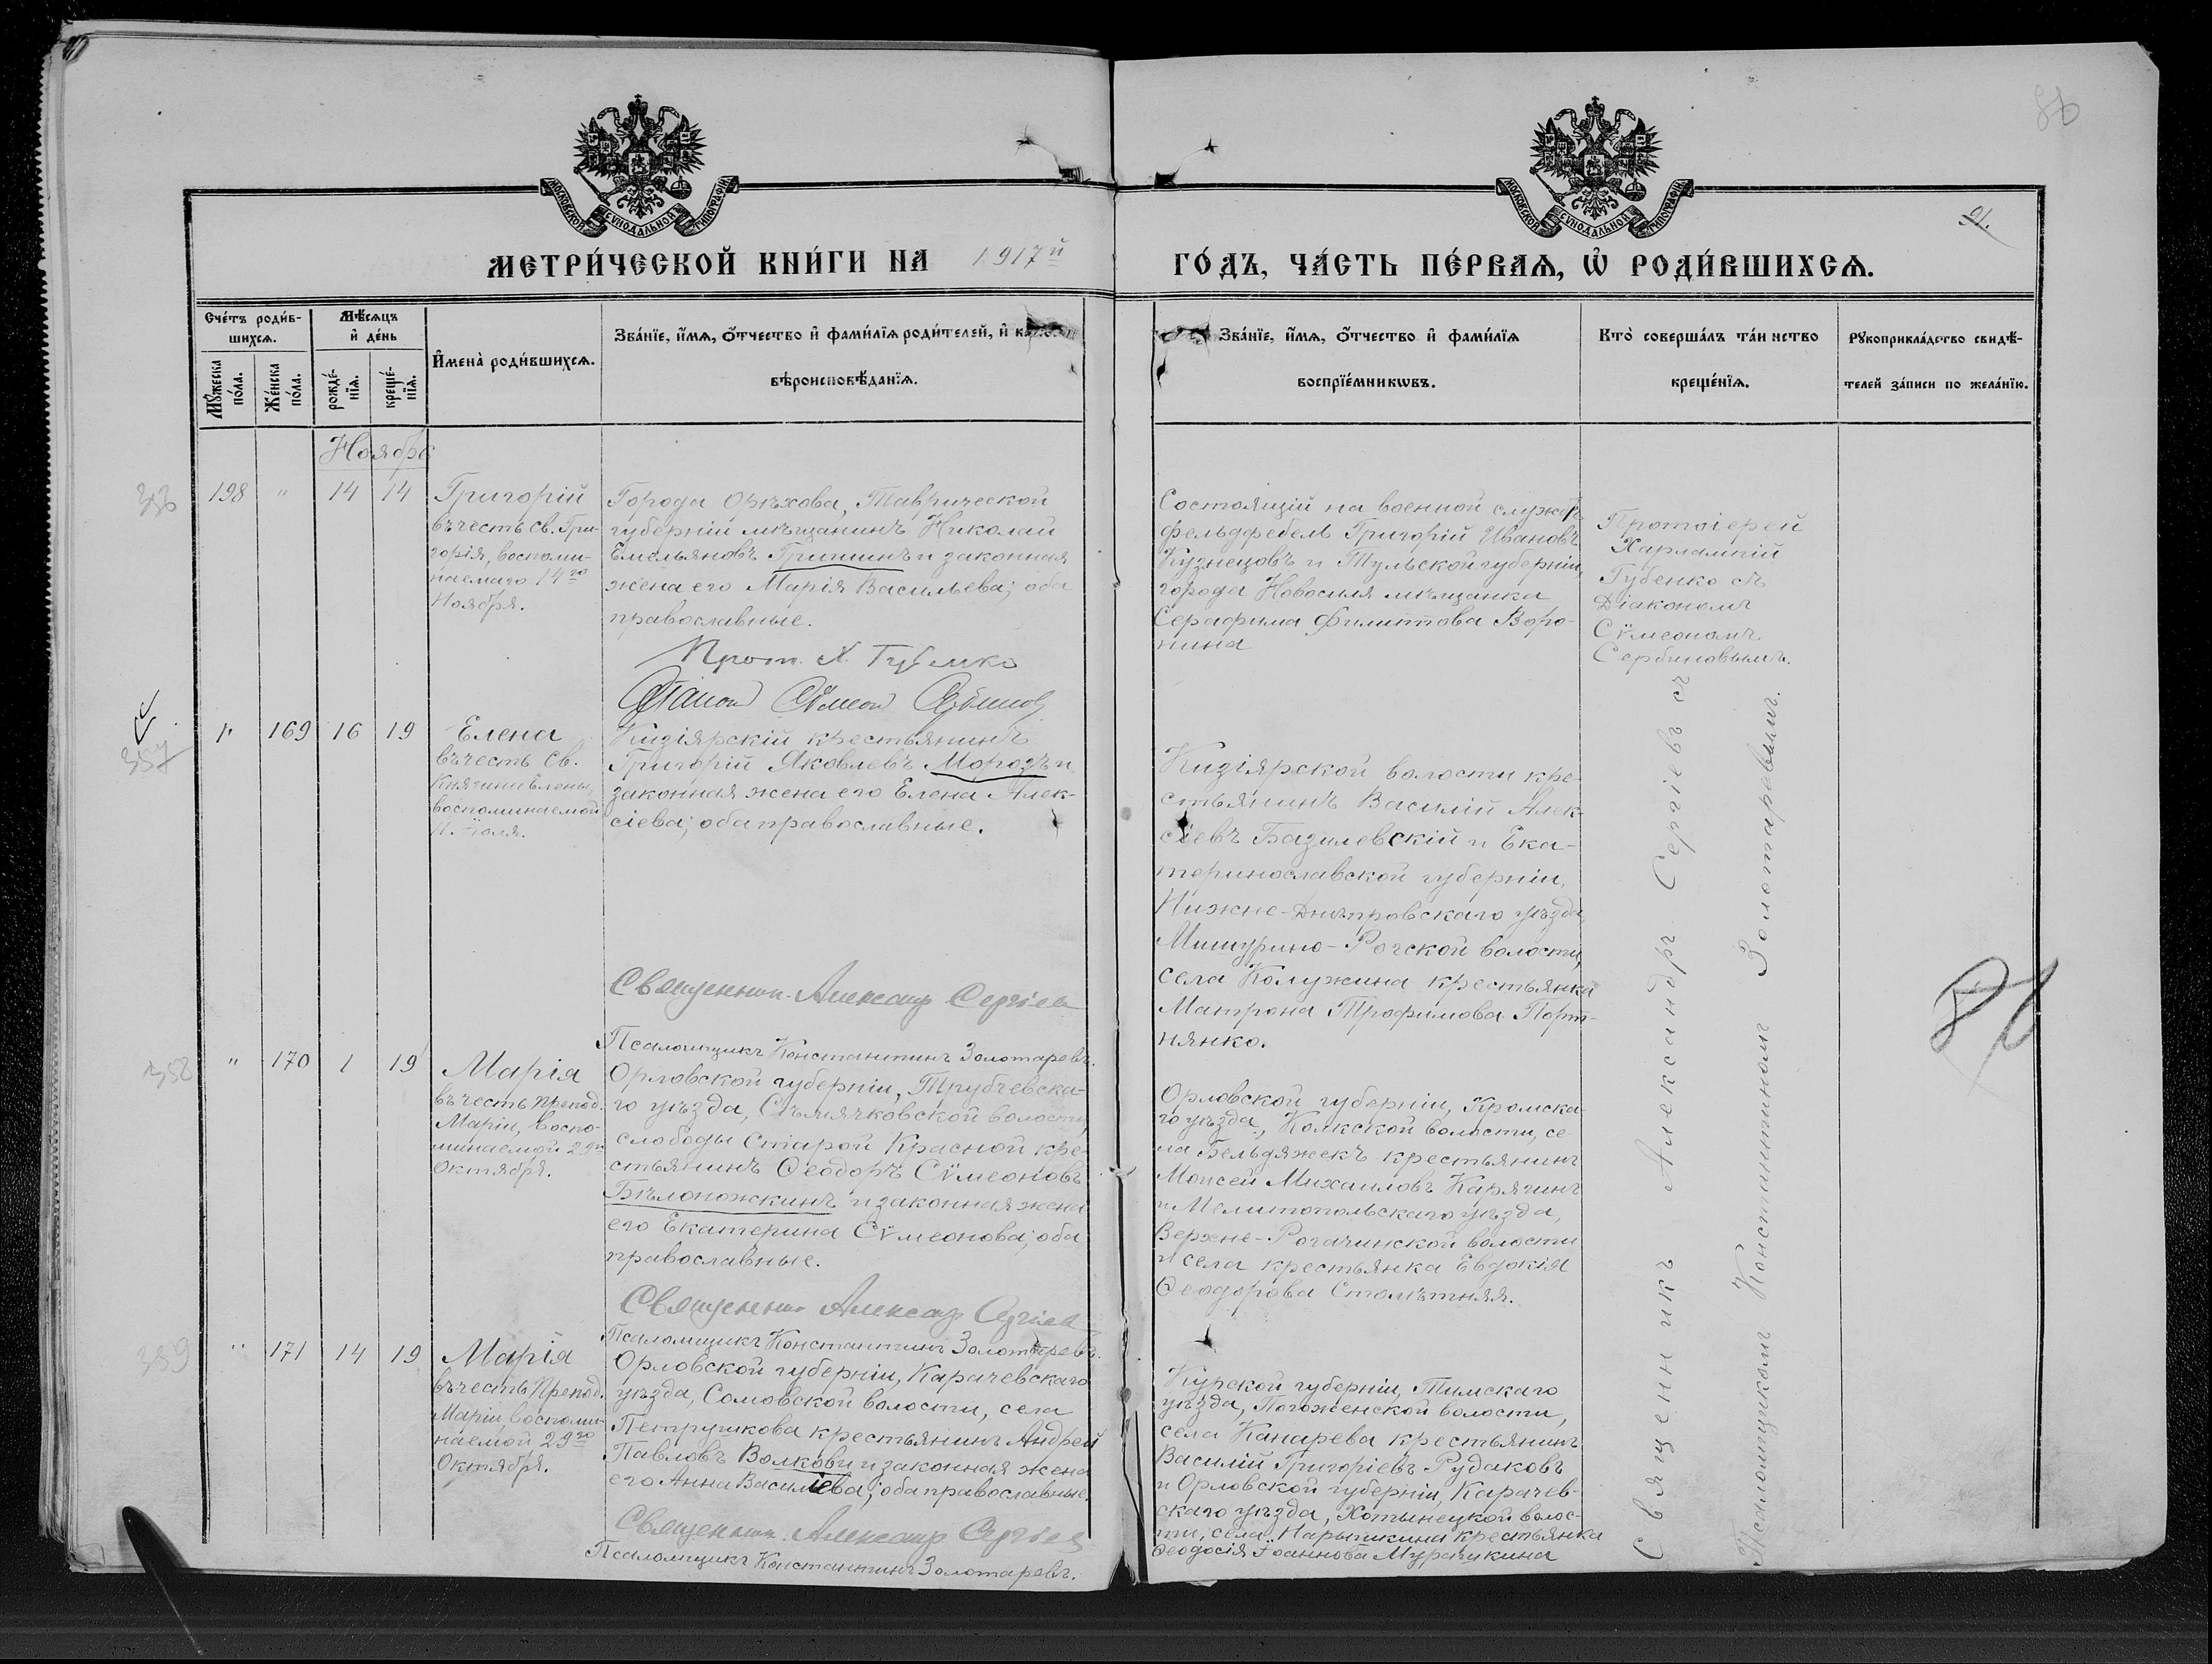 86
МОСКОВСКОЙ СѴНОДАЛЬНОЙ ТИПОГРАФІИ
МОСКОВСКОЙ СѴНОДАЛЬНОЙ ТИПОГРАФІИ
91.
МЕТРИ́ЧЕСКОЙ КНИ́ГИ НА 1917й ГО́ДЪ, ЧА́СТЬ ПЕ́РВАѦ, Ѡ РОДИ́ВШИХСѦ.
Сче́тъ роди́в-
шихсѧ.
Мꙋжеска по́ла.
Же́нска по́ла.
Мѣ́сѧцъ
и҆ де́нь
рожде́-
нїѧ.
креще́-
нїѧ.
И҆мена̀ роди́вшихсѧ.
Зва́нїе, и҆́мѧ, ѻ҆́тчество и҆ фами́лїѧ роди́телей, и҆
вѣроисповѣ́данїѧ.
Зва́нїе, и҆́мѧ, ѻ҆́тчество и҆ фами́лїѧ
воспрїе́мникѡвъ.
Кто̀ соверша́лъ та́инство
креще́нїѧ.
Рꙋкоприкла́дство свидѣ́-
телей за́писи по жела́нїю.
Ноября
198 " 14 14
Григорій
въ честь св. Гри-
горія, воспоми-
наемаго 14го
Ноября.
Города Орѣхова, Таврической
губерніи мѣщанинъ Николай
Емельяновъ Гришинъ и законная
жена его Марія Васильева; оба
православные.
Прот. Х. Губенко
Діакон Сѵмеон Сербинов
Состоящій на военной службѣ
фельдфебель Григорій Ивановъ
Кузнецовъ и Тульской губерніи,
города Новосиля мѣщанка
Серафима Филиппова Воро-
нина
Протоіерей
Харлампій
Губенко съ
Діакономъ
Сѵмеономъ
Сербиновымъ.
357
" 169 16 19
Елена
въ честь Св.
Княгини Елены,
воспоминаемой
11 Іюля.
Кизіярскій крестьянинъ
Григорій Яковлевъ Морозъ и
законная жена его Елена Алек-
сіева; оба православные.
Священник Александр Сергіев
Псаломщикъ Константинъ Золотаревъ.
Кизіярской волости кре-
стьянинъ Василій Алек-
сіевъ Базилевскій и Ека-
теринославской губерніи,
Нижне-Днѣпровскаго уѣзда,
Мишурино-Рогской волости,
села Колужина крестьянка
Матрона Трофимова Порт-
нянко.
Священникъ Александръ Сергіевъ съ
Псаломщикомъ Константиномъ Золотаревымъ.
86
358
" 170 1 19
Марія
въ честь Препод.
Маріи, воспо-
минаемой 29го
Октября.
Орловской губерніи, Трубчевска-
го уѣзда, Сѣмячковской волости,
слободы Старой Красной кре-
стьянинъ Ѳеодоръ Сѵмеоновъ
Бѣлоножкинъ и законная жена
его Екатерина Сѵмеонова; оба
православные.
Священник Александр Сергіев
Псаломщикъ Константинъ Золотаревъ.
Орловской губерніи, Кромска-
го уѣзда, Колкской волости, се-
ла Бельдяжекъ крестьянинъ
Моисей Михаиловъ Карягинъ
и Мелитопольскаго уѣзда,
Верхне-Рогачинской волости
и села крестьянка Евдокія
Ѳеодорова Столѣтняя.
359
" 171 14 19
Марія
въ честь Препод.
Маріи, воспоми-
наемой 29го
Октября.
Орловской губерніи, Карачевскаго
уѣзда, Сомовской волости, села
Петрушкова крестьянинъ Андрей
Павловъ Волковъ и законная жена
его Анна Василіева; оба православные.
Священник Александр Сергіев
Псаломщикъ Константинъ Золотаревъ.
Курской губерніи, Тимскаго
уѣзда, Погоженской волости,
села Канарева крестьянинъ
Василій Григоріевъ Рудаковъ
и Орловской губерніи, Карачев-
скаго уѣзда, Хотынецкой волос-
ти, села Нарышкина крестьянка
Ѳеодосія Іоаннова Мурашкина